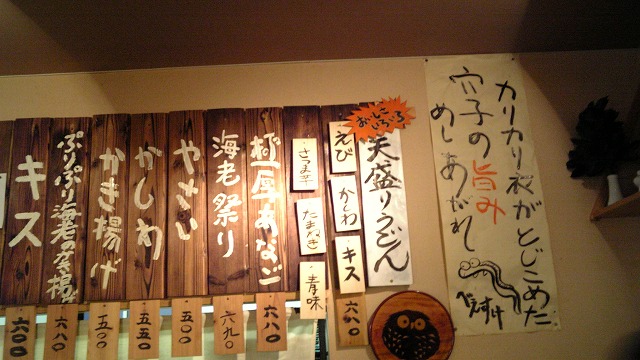 カリカリ衣がとじこめた
穴子の旨み
めしあがれ
べえすけ
おいしさ
いろいろ
天盛りうどん
えび
かしわ
キス
六八〇
さつま芋
たまねぎ
青味
極厚あなご
六八〇
海老祭り
六九〇
やさい
五〇〇
かしわ
五五〇
かき揚げ
五〇〇
ぷりぷり海老のかき揚げ
六八〇
キス
六〇〇